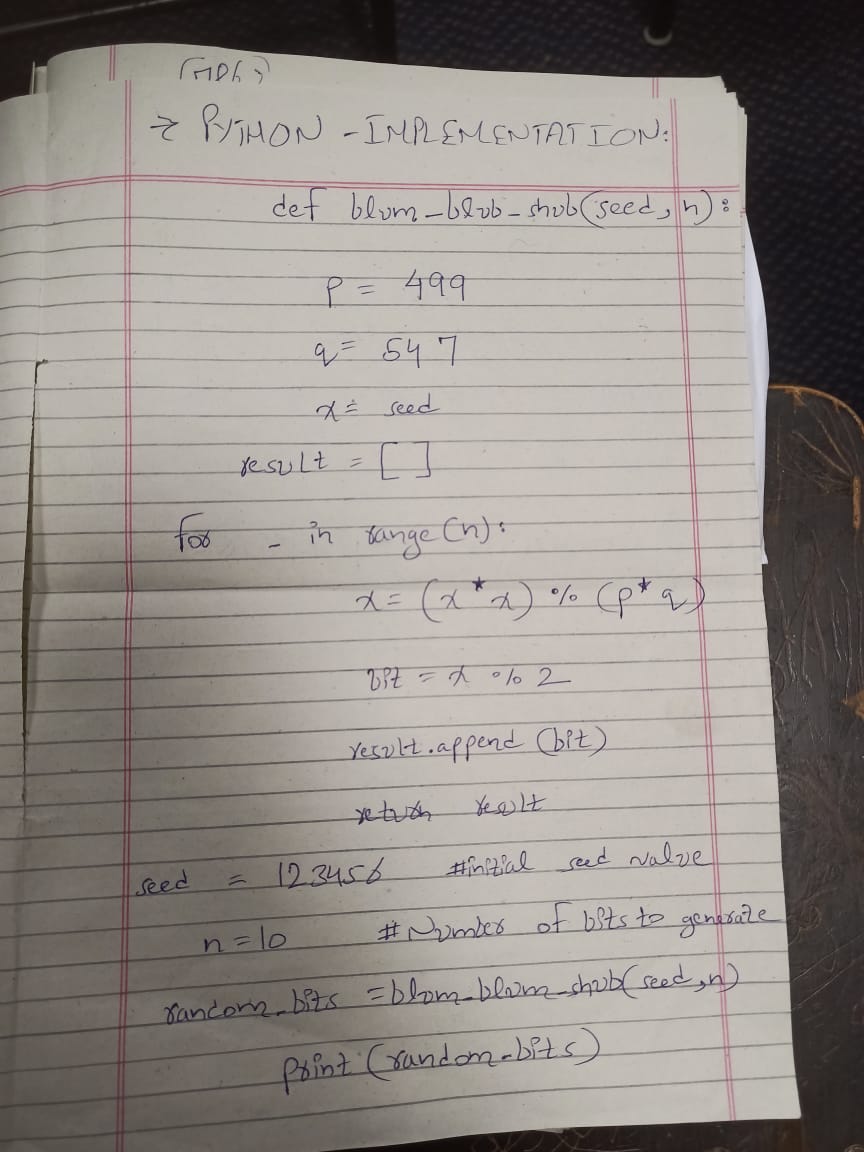 → PYTHON - IMPLEMENTATION:
def blum-blub-shub(seed, n):
p = 499
q = 547
x = seed
result = []
for _ in range(n):
x = (x*x) % (p*q)
bit = x % 2
result.append(bit)
return result
seed = 123456 #initial seed value
n = 10 # Number of bits to generate
random_bits = blum-blum-shub(seed,n)
print(random-bits)